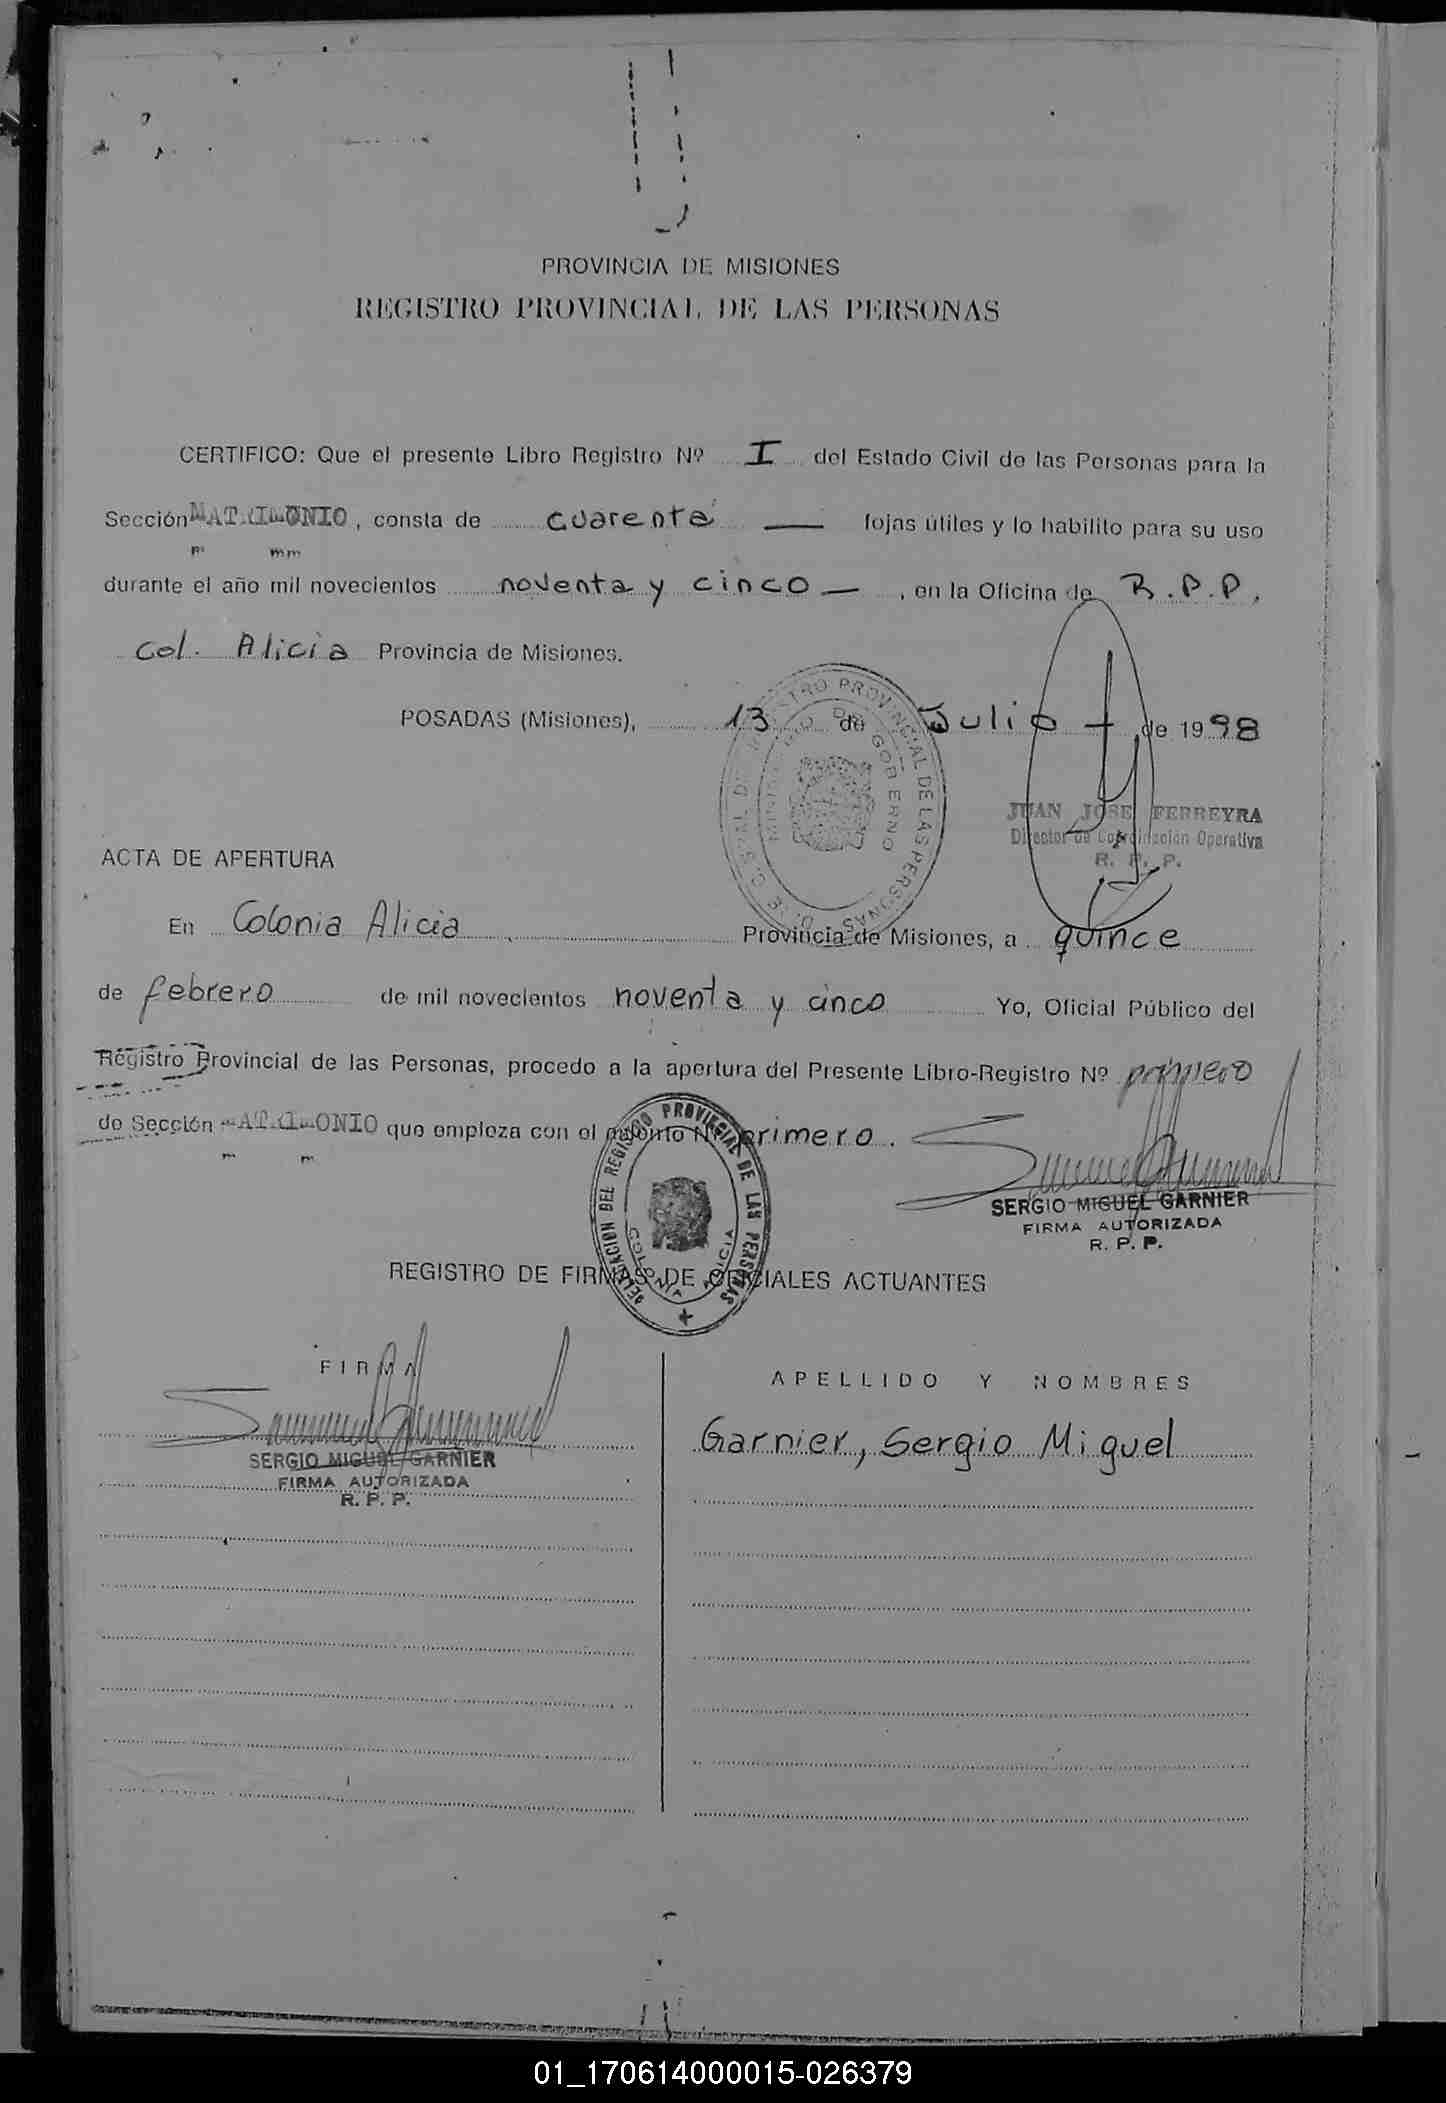 PROVINCIA DE MISIONES
REGISTRO PROVINCIAL DE LAS PERSONAS
CERTIFICO: Que el presente Libro Registro Nº I del Estado Civil de las Personas para la
Sección MATRIMONIO, consta de cuarenta — fojas útiles y lo habilito para su uso
durante el año mil novecientos noventa y cinco —, en la Oficina de R.P.P.
Col. Alicia Provincia de Misiones.
POSADAS (Misiones), 13 de Julio de 1998
REGISTRO PROVINCIAL DE LAS PERSONAS
MINISTERIO DE GOBIERNO
JUAN JOSE FERREYRA
Director de Coordinación Operativa
R. P. P.
ACTA DE APERTURA
En Colonia Alicia Provincia de Misiones, a quince
de febrero de mil novecientos noventa y cinco Yo, Oficial Público del
Registro Provincial de las Personas, procedo a la apertura del Presente Libro-Registro Nº primero
de Sección MATRIMONIO que empieza con el asiento Nº primero.
DELEGACION DEL REGISTRO PROVINCIAL DE LAS PERSONAS
COLONIA ALICIA
SERGIO MIGUEL GARNIER
FIRMA AUTORIZADA
R. P. P.
REGISTRO DE FIRMAS DE OFICIALES ACTUANTES
FIRMA
APELLIDO Y NOMBRES
Garnier, Sergio Miguel
SERGIO MIGUEL GARNIER
FIRMA AUTORIZADA
R. P. P.
01_170614000015-026379